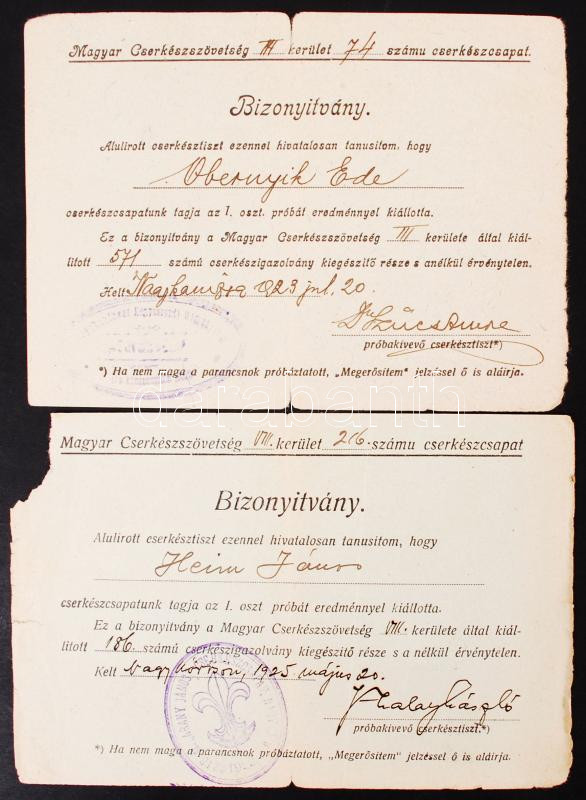 Magyar Cserkészszövetség III kerület 74 számu cserkészcsapat.
Bizonyitvány.
Alulirott cserkésztiszt ezennel hivatalosan tanusitom, hogy
Obernyik Ede
cserkészcsapatunk tagja az I. oszt. próbát eredménnyel kiállotta.
Ez a bizonyitvány a Magyar Cserkészszövetség III kerülete által kiál-
litott 571 számú cserkészigazolvány kiegészitő része s anélkül érvénytelen.
Kelt Nagykanizsa 923 jul. 20.
Dr Szücs Imre
próbakivevő cserkésztiszt*)
*) Ha nem maga a parancsnok próbáztatott, „Megerősitem" jelzéssel ő is aláirja.
darabanth
Magyar Cserkészszövetség VIII. kerület 216 számu cserkészcsapat
Bizonyitvány.
Alulirott cserkésztiszt ezennel hivatalosan tanusitom, hogy
Heim János
cserkészcsapatunk tagja az I. oszt próbát eredménnyel kiállotta.
Ez a bizonyitvány a Magyar Cserkészszövetség VIII. kerülete által kiál-
litott 186. számú cserkészigazolvány kiegészitő része s a nélkül érvénytelen.
Kelt Nagykőrösön, 1925 május 20.
László
próbakivevő cserkésztiszt.*)
*) Ha nem maga a parancsnok próbáztatott, „Megerősitem" jelzéssel ő is aláirja.
ARANY JÁNOS